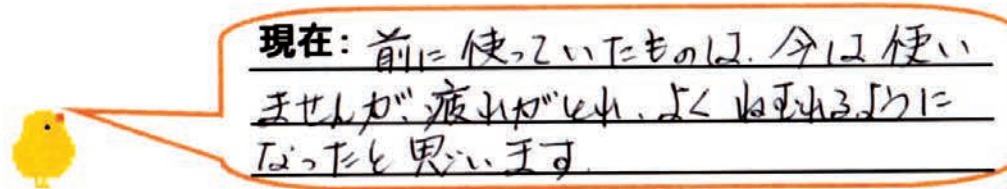 現在: 前に使っていたものは、今は使い
ませんが、疲れがとれ、よくねむれるように
なったと思います.